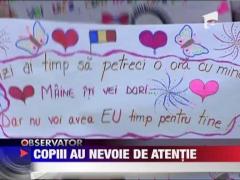 zi ai timp să petreci o oră cu mine
MÂINE ÎȚI VEI DORI...
Dar nu voi avea EU timp pentru tine!
OBSERVATOR
COPIII AU NEVOIE DE ATENȚIE
1